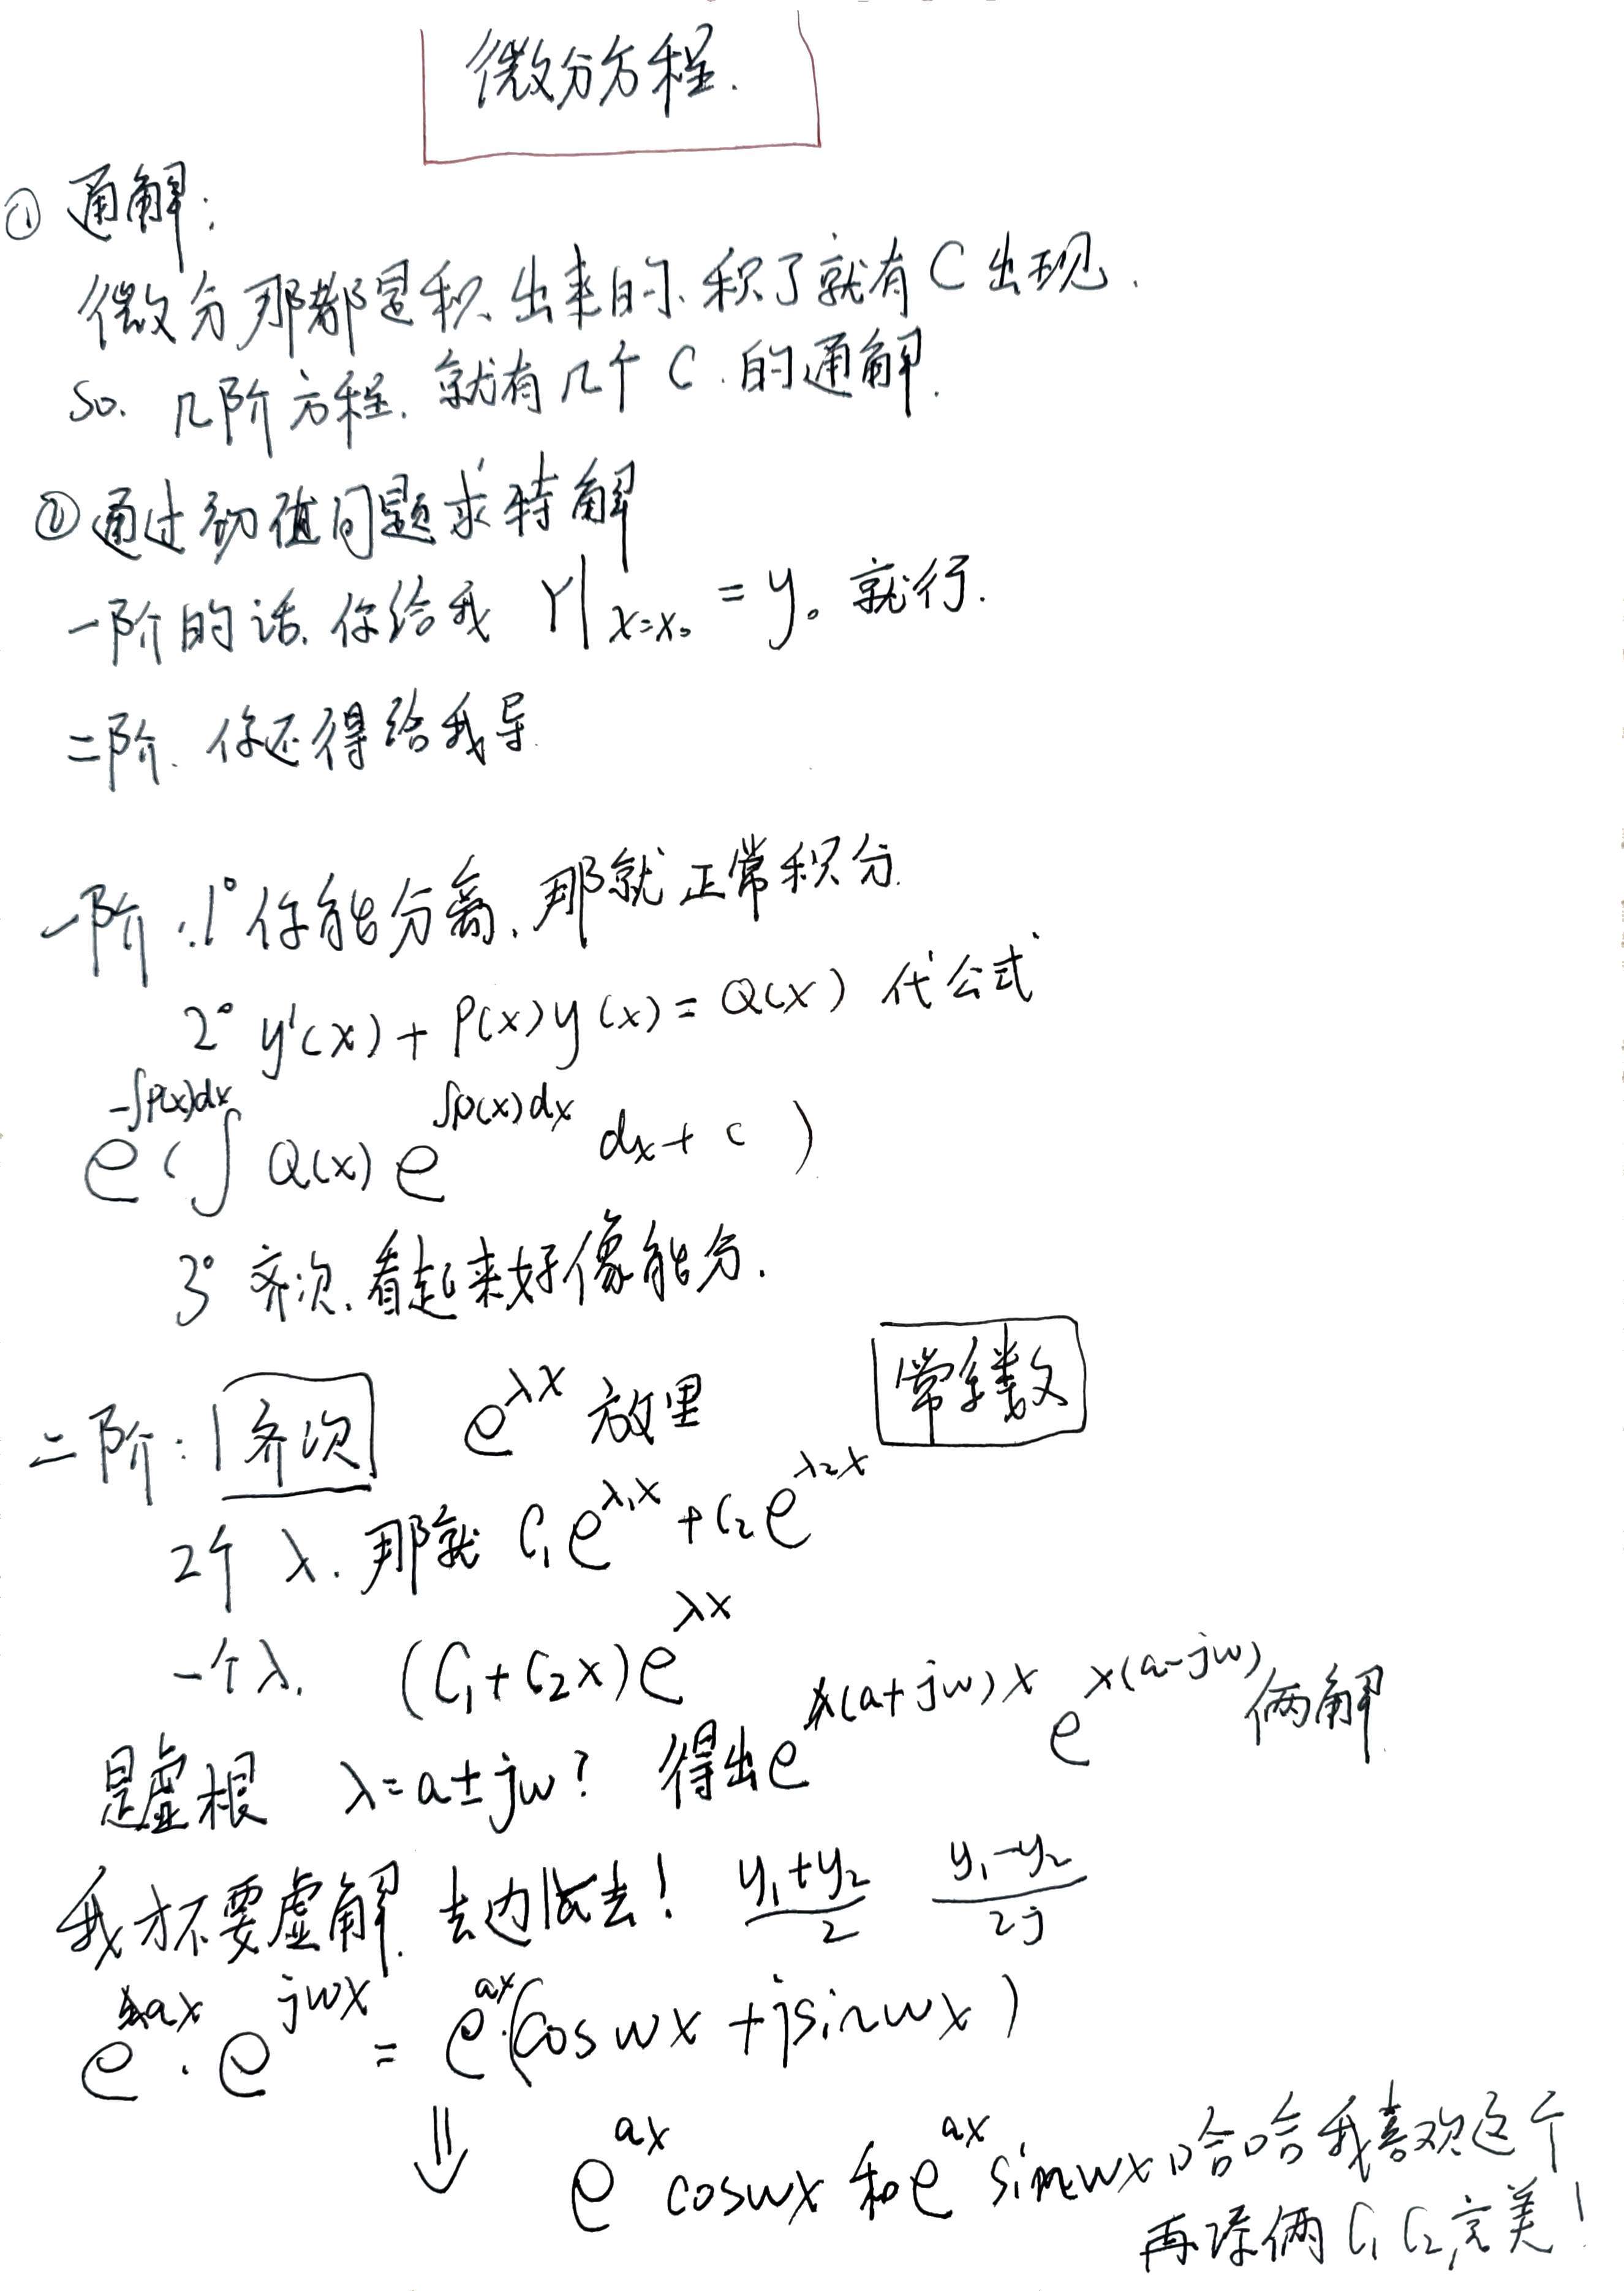 微分方程.
① 通解:
微分那都是积出来的.积了就有C出现.
So. 几阶方程.就有几个C.的通解.
② 通过初值问题求特解
一阶的话.你给我 Y|x=x₀ = y₀ 就行.
二阶.你还得给我导
一阶:1° 你能分离.那就正常积分.
2° y'(x)+P(x)y(x)=Q(x) 代公式
e^(-∫P(x)dx) (∫Q(x)e^(∫p(x)dx) dx+c)
3° 齐次.看起来好像能分.
二阶: 齐次 e^(λx) 放里 常系数
2个 λ.那就 C₁e^(λ₁x)+C₂e^(λ₂x)
一个λ. (C₁+C₂x)e^(λx)
是虚根 λ=a±jw? 得出e^((a+jw)x) e^(x(a-jw)) 俩解
我才不要虚解.去边去! (y₁+y₂)/2 (y₁-y₂)/2j
e^(ax)·e^(jwx) = e^(ax)·(cos wx+jsin wx)
⇓ e^(ax) cos wx 和 e^(ax) sin wx 哈哈我喜欢这个
再添俩 C₁ C₂,完美!